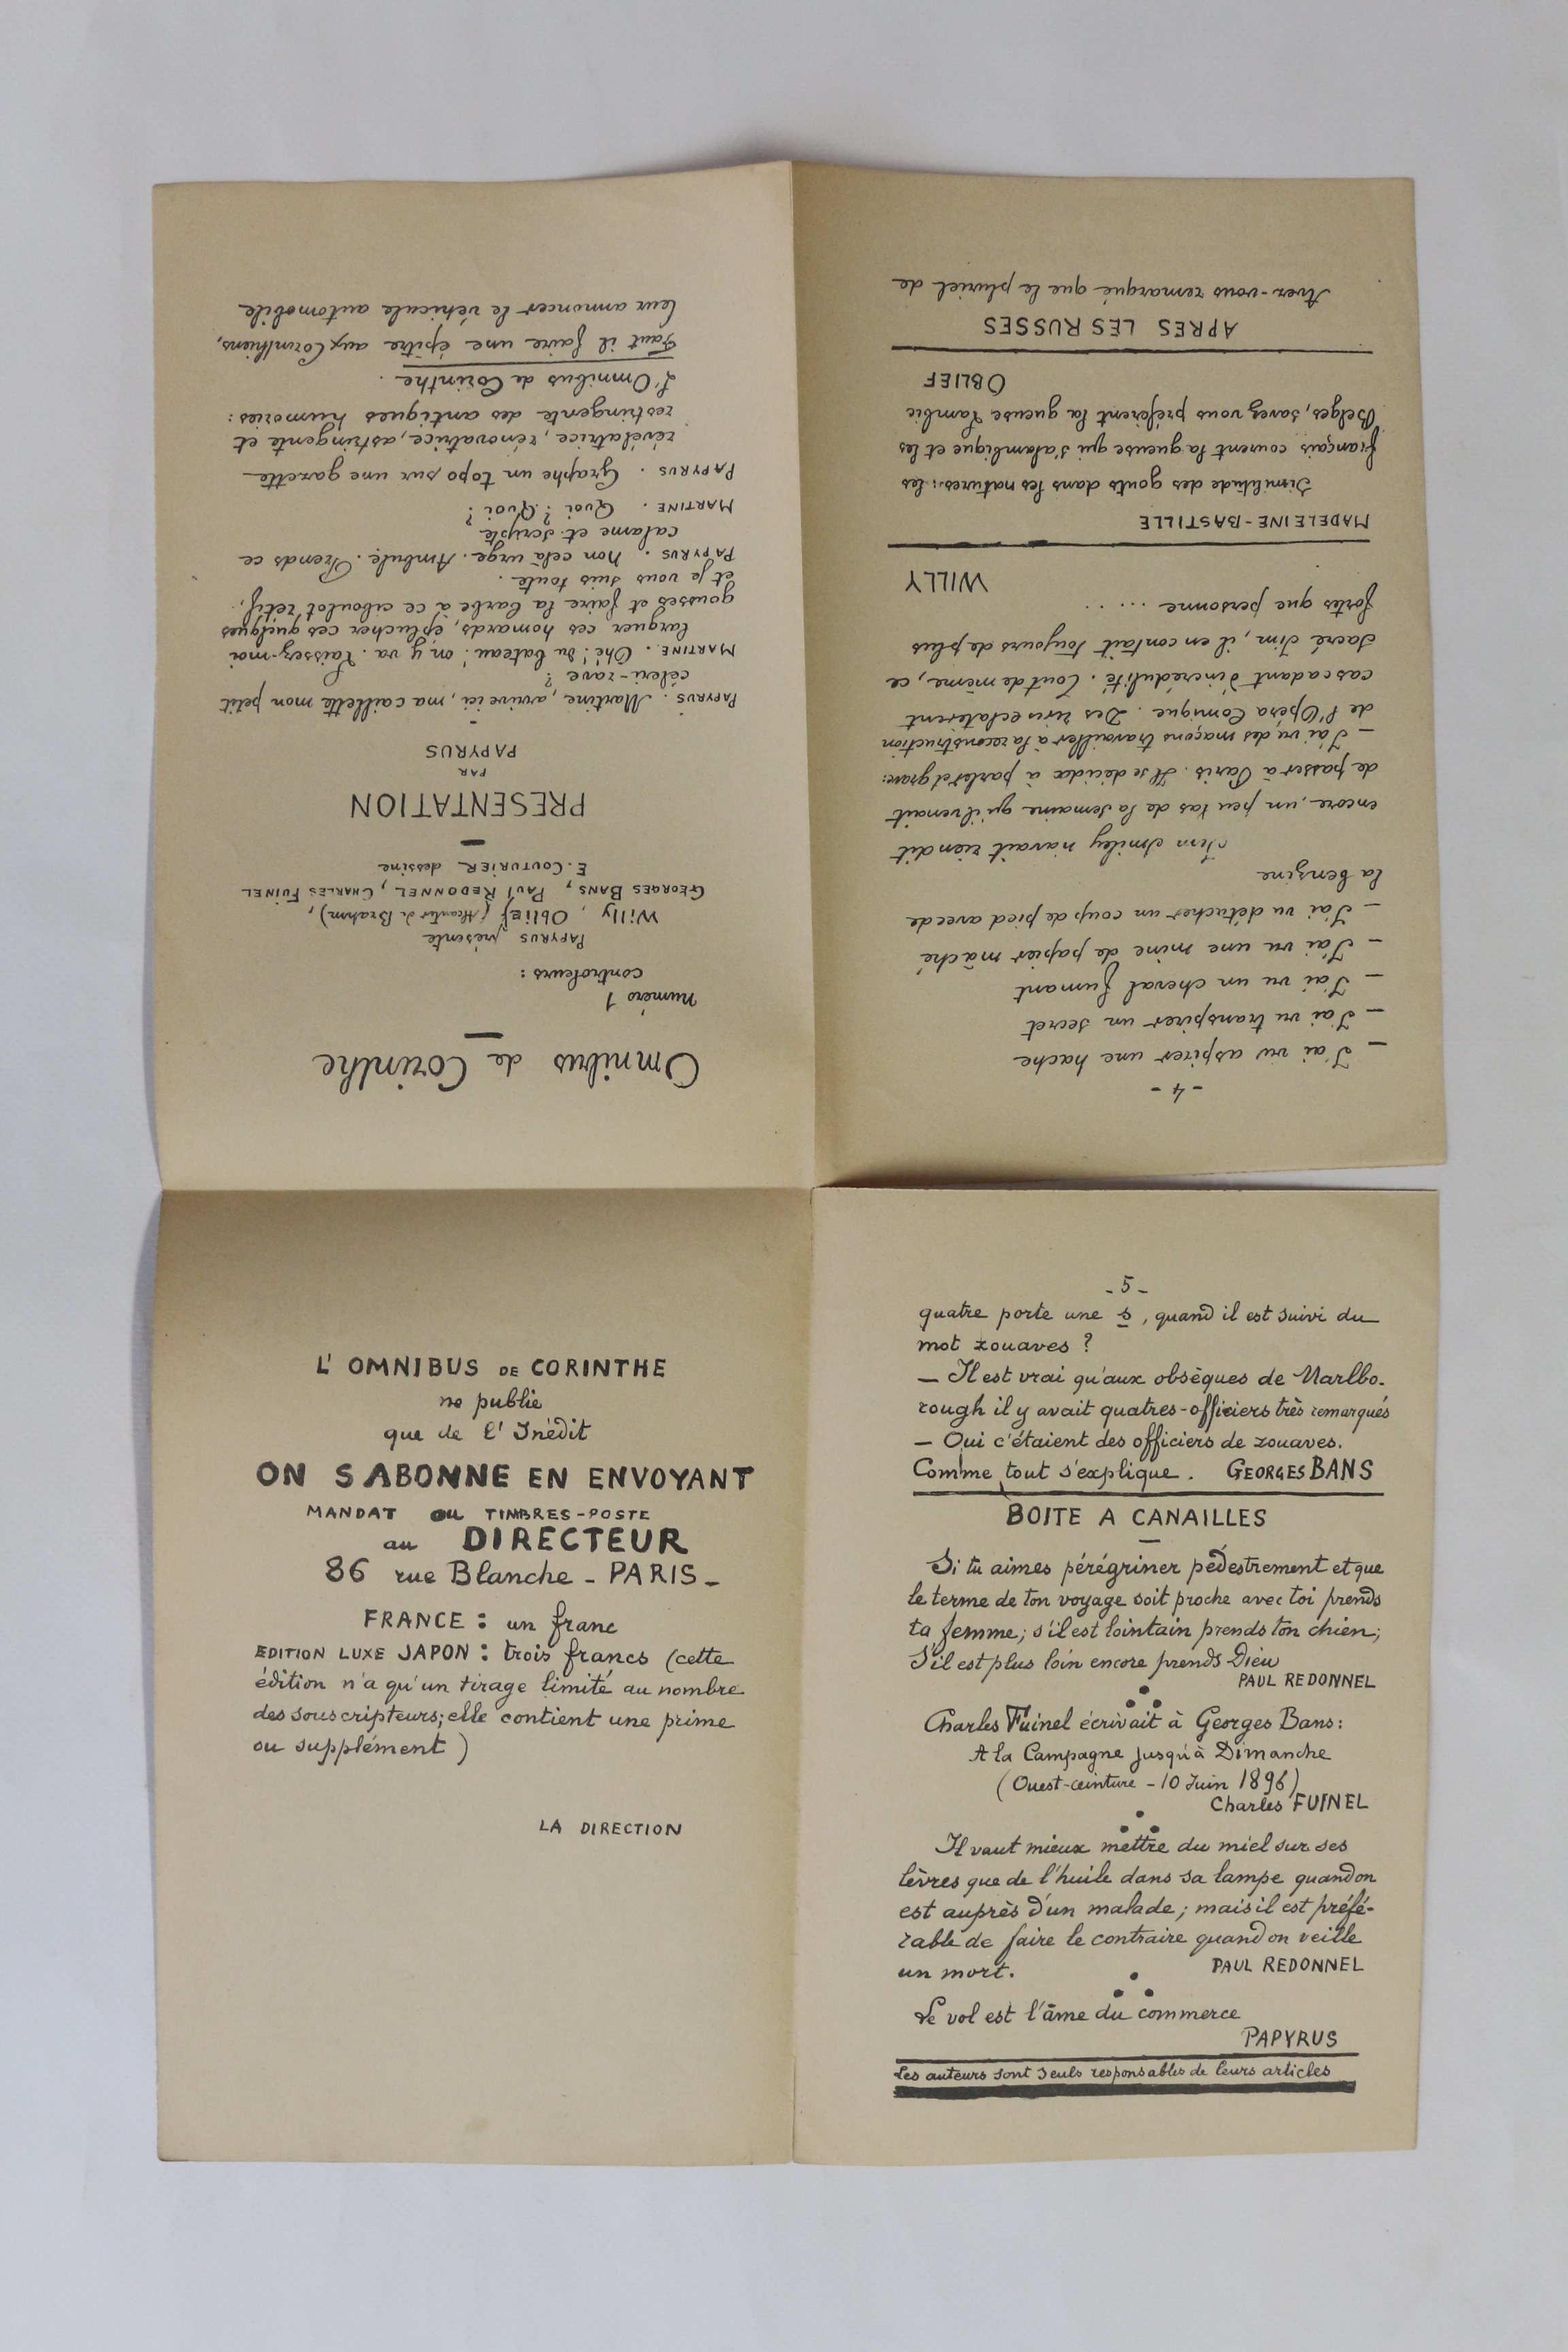 Omnibus de Corinthe
numéro 1
controleurs :
PAPYRUS présente
Willy, Oblief (Alcanter de Brahm),
GEORGES BANS, PAUL REDONNEL, CHARLES FUINEL
E. COUTURIER dessine
PRESENTATION
PAR
PAPYRUS
PAPYRUS. Martine, arrive ici, ma caillette mon petit
céleri-rave ?
MARTINE. Ohé ! du bateau ! on y va. Laissez-moi
larguer ces homards, éplucher ces quelques
gousses et faire la barbe à ce ciboulot rétif,
et je vous suis toute.
PAPYRUS. Non cela urge. Ambule. Prends ce
calame et scripte
MARTINE. Quoi ? Quoi ?
PAPYRUS. Graphe un topo sur une gazette
révélatrice, rénovatrice, astringente et
restringente des antiques humories :
L'Omnibus de Corinthe.
Faut il faire une épître aux Corinthiens,
leur annoncer le véhicule automobile
- 4 -
— J'ai vu aspirer une hache
— J'ai vu transpirer un secret
— J'ai vu un cheval fumant
— J'ai vu une mine de papier mâché
— J'ai vu détacher un coup de pied avec de
la benzine
Jim Smiley n'avait rien dit
encore, un peu las de la semaine qu'il venait
de passer à Paris. Il se décida à parler et grave :
— J'ai vu des maçons travailler à la reconstruction
de l'Opéra Comique. Des rires éclatèrent
cascadant d'incrédulité. Tout de même, ce
sacré Jim, il en contait toujours de plus
fortes que personne ....
WILLY
MADELEINE-BASTILLE
Similitude des gouts dans les natures : les
français courent la gueuse qui s'alambique et les
Belges, savez vous préfèrent la gueuse Lambic
OBLIEF
APRES LES RUSSES
Avez-vous remarqué que le pluriel de
- 5 -
quatre porte une s, quand il est suivi du
mot zouaves ?
— Il est vrai qu'aux obsèques de Marlbo-
rough il y avait quatres-officiers très remarqués
— Oui c'étaient des officiers de zouaves.
Comme tout s'explique. GEORGES BANS
BOITE A CANAILLES
Si tu aimes pérégriner pédestrement et que
le terme de ton voyage soit proche avec toi prends
ta femme ; s'il est lointain prends ton chien ;
S'il est plus loin encore prends Dieu
PAUL REDONNEL
Charles Fuinel écrivait à Georges Bans :
A la Campagne jusqu'à Dimanche
(Ouest-ceinture - 10 Juin 1896)
Charles FUINEL
Il vaut mieux mettre du miel sur ses
lèvres que de l'huile dans sa lampe quand on
est auprès d'un malade ; mais il est préfé-
rable de faire le contraire quand on veille
un mort. PAUL REDONNEL
Le vol est l'âme du commerce
PAPYRUS
Les auteurs sont seuls responsables de leurs articles
L' OMNIBUS DE CORINTHE
ne publie
que de l' Inédit
ON S ABONNE EN ENVOYANT
MANDAT ou TIMBRES-POSTE
au DIRECTEUR
86 rue Blanche - PARIS -
FRANCE : un franc
EDITION LUXE JAPON : trois francs (cette
édition n'a qu'un tirage limité au nombre
des souscripteurs ; elle contient une prime
ou supplément )
LA DIRECTION